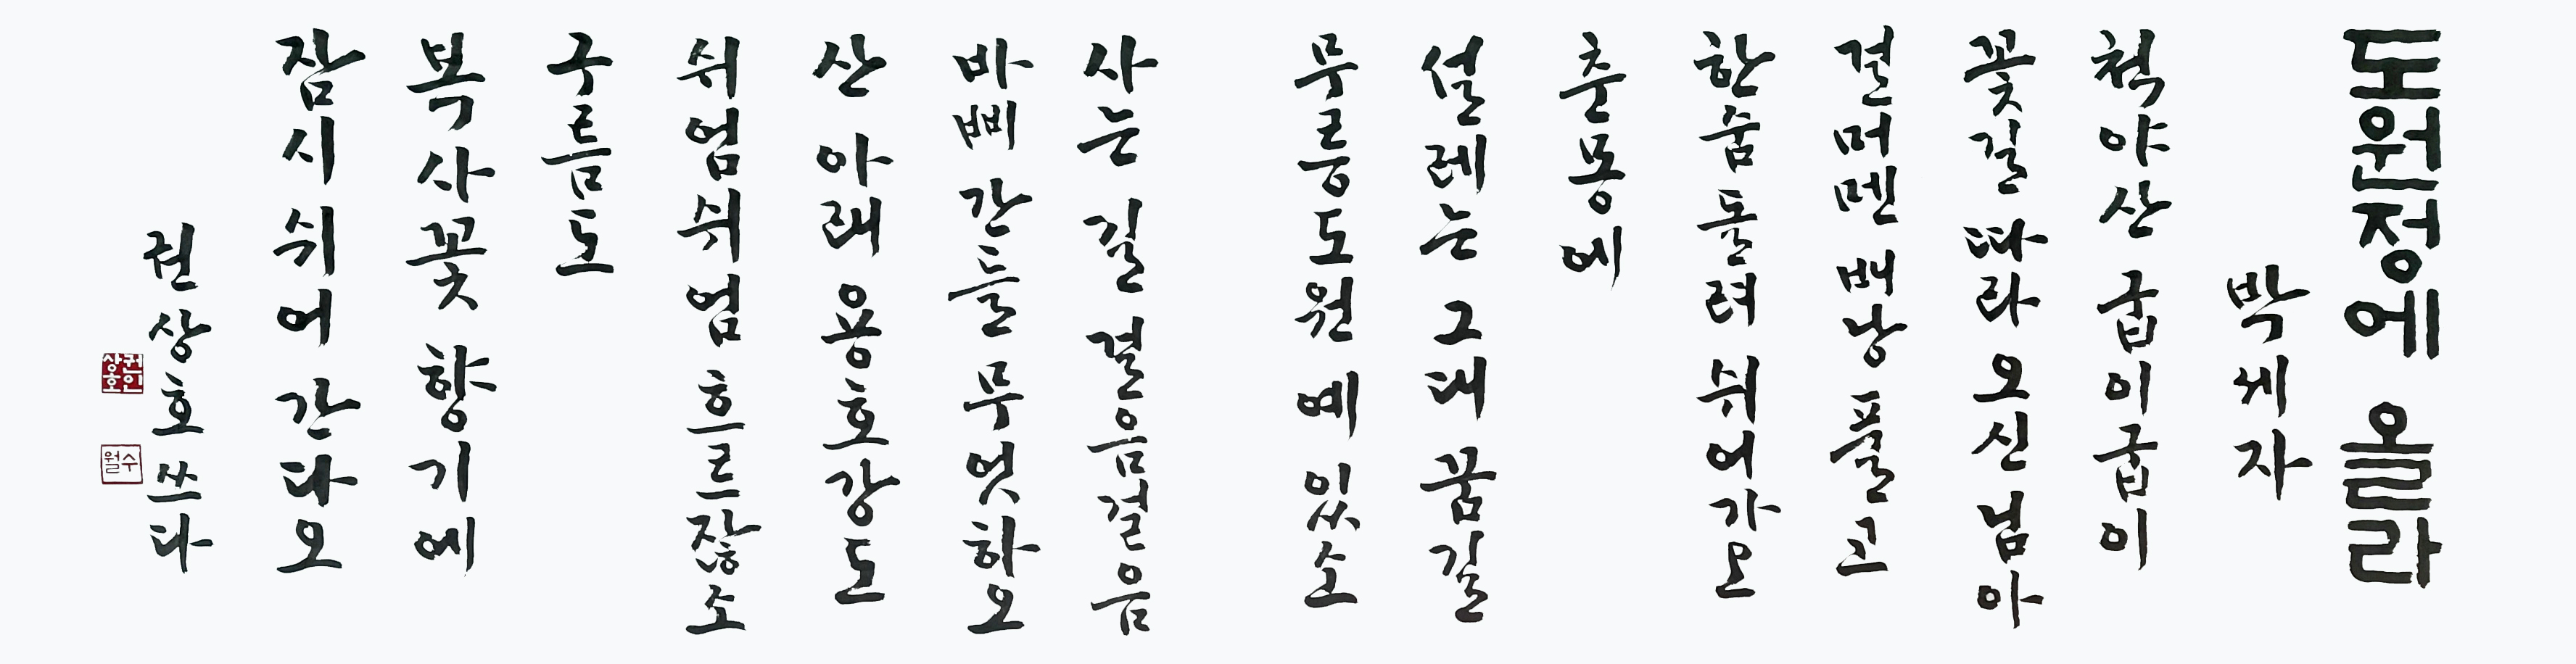 도원정에 올라
박세자
척야산 굽이굽이
꽃길 따라 오신 님아
결머멘 배낭 풀고
한숨 돌려 쉬어가오
춘몽에
설레는 그대 꿈길
무릉도원 예 있소
사는 길 걸음걸음
바삐 간들 무엇하오
산 아래 용호강도
쉬엄쉬엄 흐르잖소
구름도
복사꽃 향기에
잠시 쉬어 간다오
권상호 쓰다
권인상호
수월